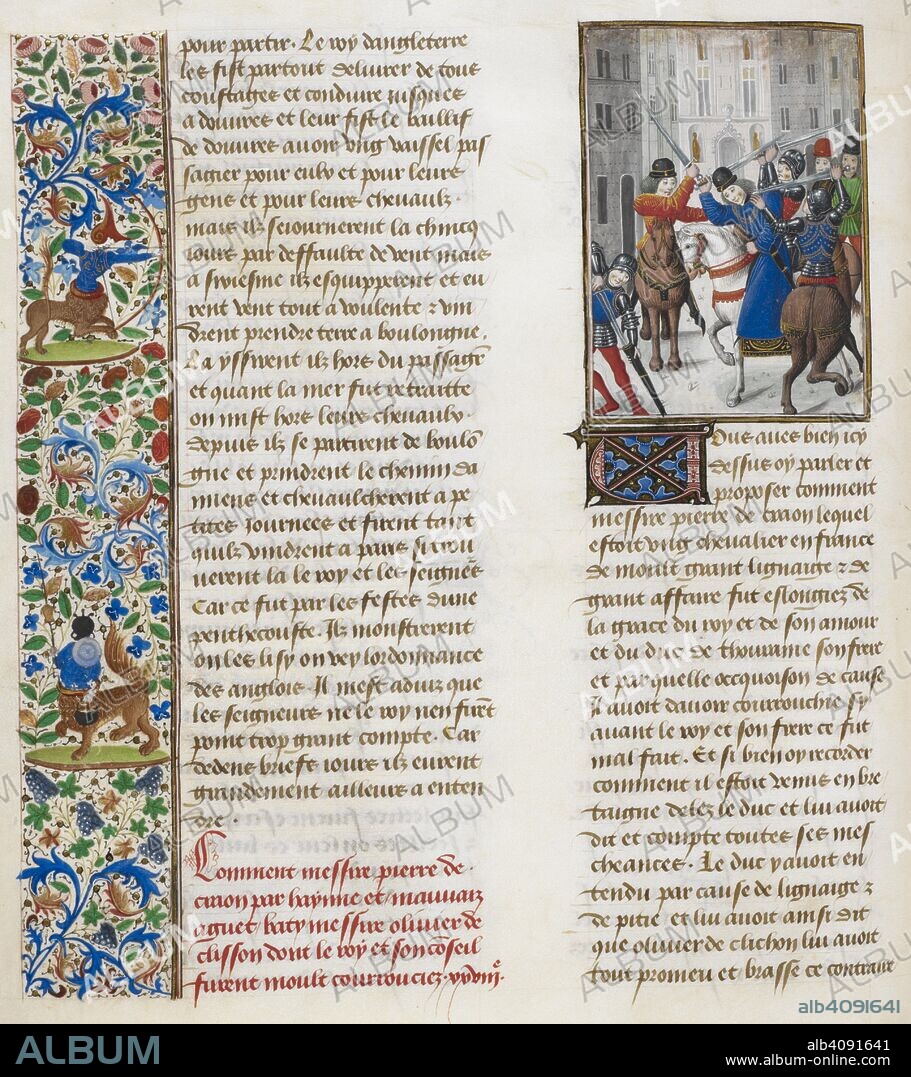 pour partir. Le roy dangleterre
les fist partout deliurer de tous
coustages et conduire iusques
a douures et leur fist le baillif
de douures auoir vng vaissel pas
sagier pour eulx et pour leurs
gens et pour leurs cheuaulx.
mais ilz seiournerent la chincq
iours par deffaulte de vent mais
a sixiesme ilz esquipperent et eu
rent vent tout a voulente z vin
drent prendre terre a boulongne.
La yssirent ilz hors du passage
et quant la mer fut retraitte
on mist hors leurs cheuaulx.
depuis ilz se partirent de boulo
gne et prindrent le chemin da
miens et cheuaulcherent a pe
tites iournees et firent tant
quilz vindrent a paris si trou
uerent la le roy et les seigneurs
Car ce fut par les festes dune
penthecouste. Ilz monstrerent
on les lisy on vey lordonnance
des anglois. Il mest aduiz que
les seigneurs ne le roy nen firent
point trop grant compte. Car
dedens briefz iours ilz eurent
grandement ailleurs a enten
dre.
Comment messire pierre de
craon par hayine et mauuaiz
aguet baty messire oliuier de
clisson dont le roy et son coseil
furent moult courrouciez.
Ous aues bien icy
dessus oy parler et
proposer comment
messire pierre de craon lequel
estoit vng cheualier en france
de moult grant lignaige z de
grant affaire fut eslongiez de
la grace du roy et de son amour
et du duc de thouraine son frere
et par quelle occquoison de cause
Il auoit dauoir courrouchie sy
auant le roy et son frere ce fut
mal fait. Et si bien oy recorder
comment il estoit venus en bre
taigne delez le duc et luy auoit
dit et compte toutes ses mes
cheances. Le duc y auoit en
tendu par cause de lignaige z
de pitie et luy auoit ainsi dit
que oliuier de clichon luy auoit
tout promeu et brasse ce contraire
ALBUM
alb4091641
ALBUM
alb4091641
www.album-online.com